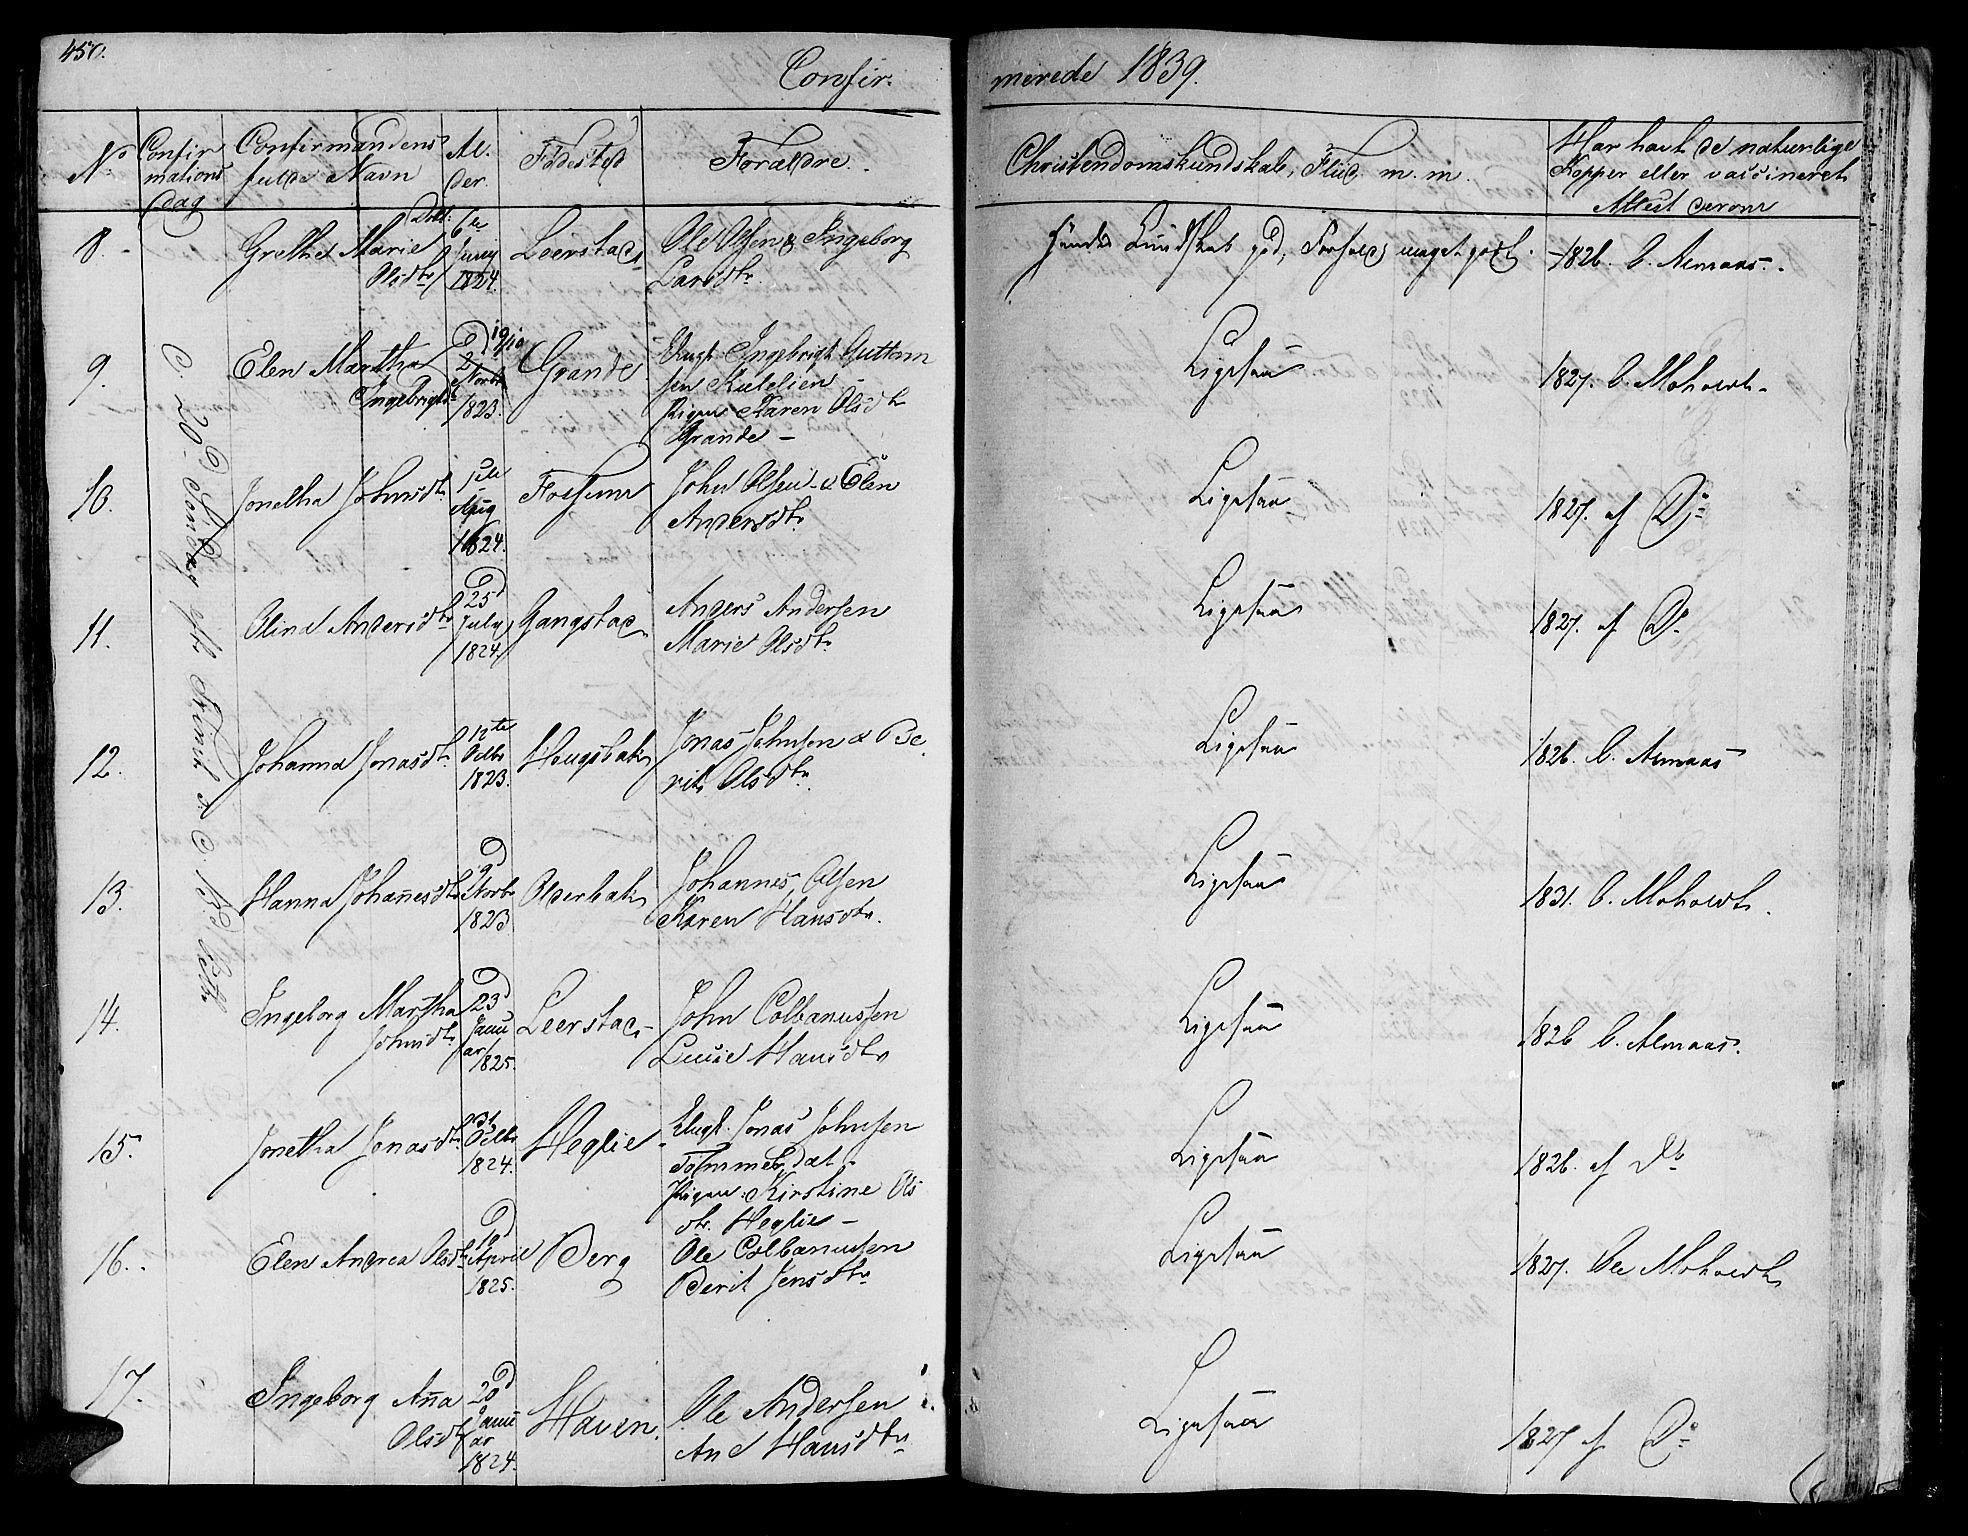 450.
Confir-
merede 1839.
No
Confir
mations
Dag
Confirmandens
fulde Navn
Al-
der.
Födested
Forældre.
Christendomskundskab, Fliid m. m.
Har havt de naturlige
Kopper eller vaccineret
Attest derom
8.
Grethe Marie
Olsdtr
6te
Juny
1824.
Leerstad
Ole Olsen & Ingeborg
Larsdtr.
Kundskab god, Forhold meget godt.
1826. C. Almaas.
9.
Elen Martha
Ingebrigtsdtr
19/10
2
Novbr
1823.
Grande
Ungk. Ingebrigt Guttorm
sen Kulelien
Pigen Karen Olsdtr
Grande -
Ligesaa
1827. C. Moholdt
10.
Jonetha Johnsdtr
1ste
Aug
1824.
Fossum
John Olsen & Elen
Andersdtr
Ligesaa
1827. af Do
11.
Olina Andersdtr
25
July
1824.
Gangstad
Anders Andersen
Marie Olsdtr
Ligesaa
1827. af Do
12.
Johanna Jonasdtr
12te
Octbr
1823.
Hougsbak
Jonas Johnsen & Be
rit Olsdtr.
Ligesaa
1826. C. Almaas
13.
Hanna Johannesdtr
9
Novbr
1823
Overbak
Johannes Olsen
Karen Hansdtr.
Ligesaa
1831. C. Moholdt.
14.
Ingeborg Martha
Johnsdtr
23
Janu
ar
1825.
Leerstad
John Colbanussen
Lucie Hansdtr
Ligesaa
1826 C. Almaas.
15.
Jonetha Jonasdtr
31
Octbr
1824.
Heglie
Ungk. Jonas Johnsen
Tømmerdal
Pigen Kirstine Ols
dtr. Heglie -
Ligesaa
1826. af Do
16.
Elen Andrea Olsdtr
19
April
1825.
Berg
Ole Colbanussen
Berit Jensdtr
Ligesaa
1827. Ole Moholdt
17.
Ingeborg Anna
Olsdtr
20
Janu
ar
1824.
Haven.
Ole Andersen
Ane Hansdtr
Ligesaa
1827 af Do
D. 20 Söndag eft. Trinit.